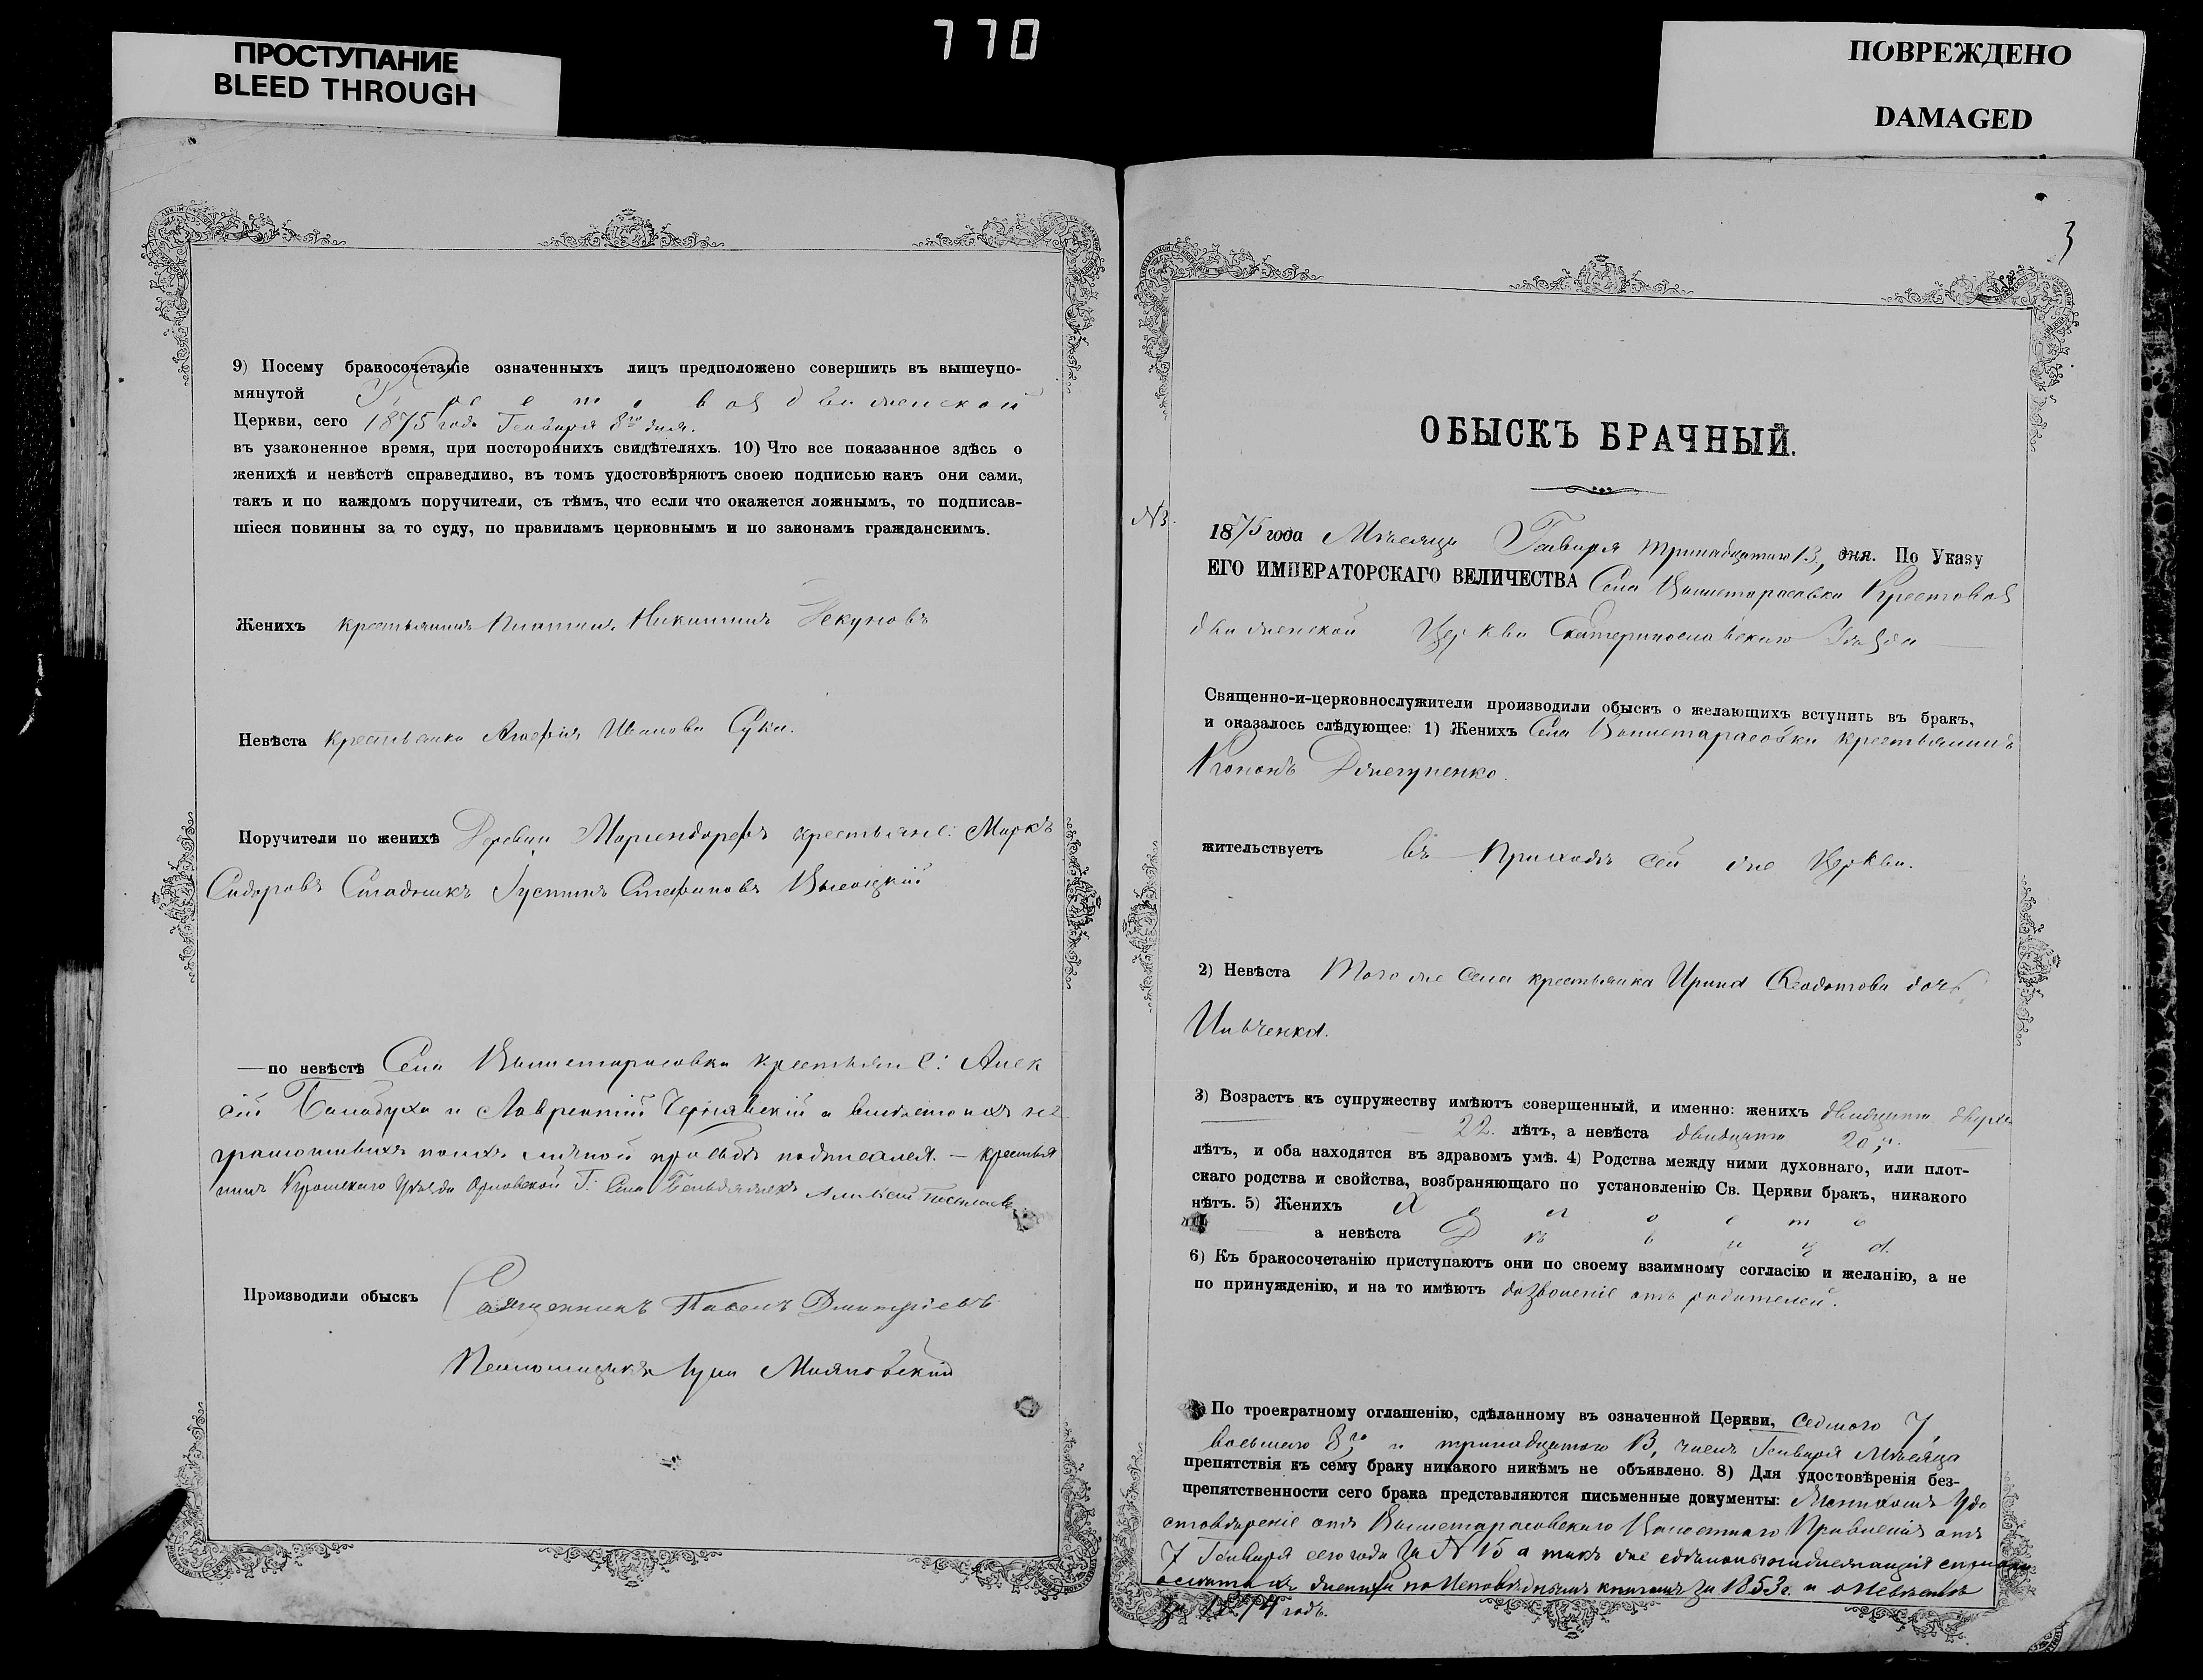 770
ПРОСТУПАНИЕ
BLEED THROUGH
ПОВРЕЖДЕНО
DAMAGED
9) Посему бракосочетаніе означенныхъ лицъ предположено совершить въ вышеупо-
мянутой Крестовоздвиженской
Церкви, сего 1875 года Генваря 8го дня.
въ узаконенное время, при постороннихъ свидѣтеляхъ. 10) Что все показанное здѣсь о
женихѣ и невѣстѣ справедливо, въ томъ удостовѣряютъ своею подписью какъ они сами,
такъ и по каждомъ поручители, съ тѣмъ, что если что окажется ложнымъ, то подписав-
шіеся повинны за то суду, по правиламъ церковнымъ и по законамъ гражданскимъ.
Женихъ крестьянинъ Никитинъ
Невѣста крестьянка Агафія Иванова Сука.
Поручители по женихѣ Деревни Маріендорфъ крестьяне: Маркъ
Сидоровъ Іустинъ Стефановъ Высоцкій
—по невѣстѣ Села Вышетарасовки крестьяне: Алек
сій Балабуха и Лаврентій Чернявскій а вместо ихъ не
грамотныхъ поихъ личной прозьбѣ подписался. — крестья
нинъ Кромскаго Уѣзда Орловской Г. Села Алексей
Производили обыскъ Священникъ Павелъ Дмитріевъ
Псаломщикъ
3
ОБЫСКЪ БРАЧНЫЙ.
№3.
1875 года Мѣсяца Генваря тринадцатаго 13, дня. По Указу
ЕГО ИМПЕРАТОРСКАГО ВЕЛИЧЕСТВА Села Вышетарасовки Крестовоз
движенской Церкви Екатеринославскаго Уѣзда
Священно-и-церковнослужители производили обыскъ о желающихъ вступить въ бракъ,
и оказалось слѣдующее: 1) Женихъ Села Вышетарасовки крестьянинъ
Кононъ
жительствуетъ въ Приходѣ сей же Церкви.
2) Невѣста Того же Села крестьянка Ирина Феодотова дочь
Ивченкова.
3) Возрастъ къ супружеству имѣютъ совершенный, и именно: женихъ двадцати двухъ
22. лѣтъ, а невѣста двадцати 20,
лѣтъ, и оба находятся въ здравомъ умѣ. 4) Родства между ними духовнаго, или плот-
скаго родства и свойства, возбраняющаго по установленію Св. Церкви бракъ, никакого
нѣтъ. 5) Женихъ Холостъ
а невѣста Дѣвица.
6) Къ бракосочетанію приступаютъ они по своему взаимному согласію и желанію, а не
по принужденію, и на то имѣютъ дозволеніе отъ родителей.
По троекратному оглашенію, сдѣланному въ означенной Церкви, седмого 7
восьмаго 8го и тринадцатаго 13, числъ Генваря Мѣсяца
препятствія къ сему браку никакого никѣмъ не объявлено. 8) Для удостовѣренія без-
препятственности сего брака представляются письменные документы: Женихомъ Удо
стовѣреніе отъ Вышетарасовскаго Волостнаго Правленія отъ
7 Генваря сего года за № 15 а такъ же
по Исповѣднымъ книгамъ за 1853 г. и о невѣстѣ
за 1874 годъ.